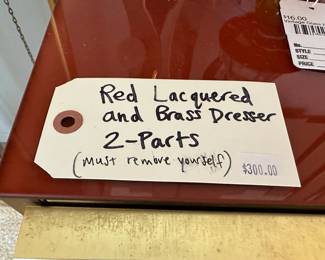 Red Lacquered
and Brass Dresser
2-Parts
(must remove yourself)
$300.00
$16.00
No.
STYLE
SIZE
PRICE